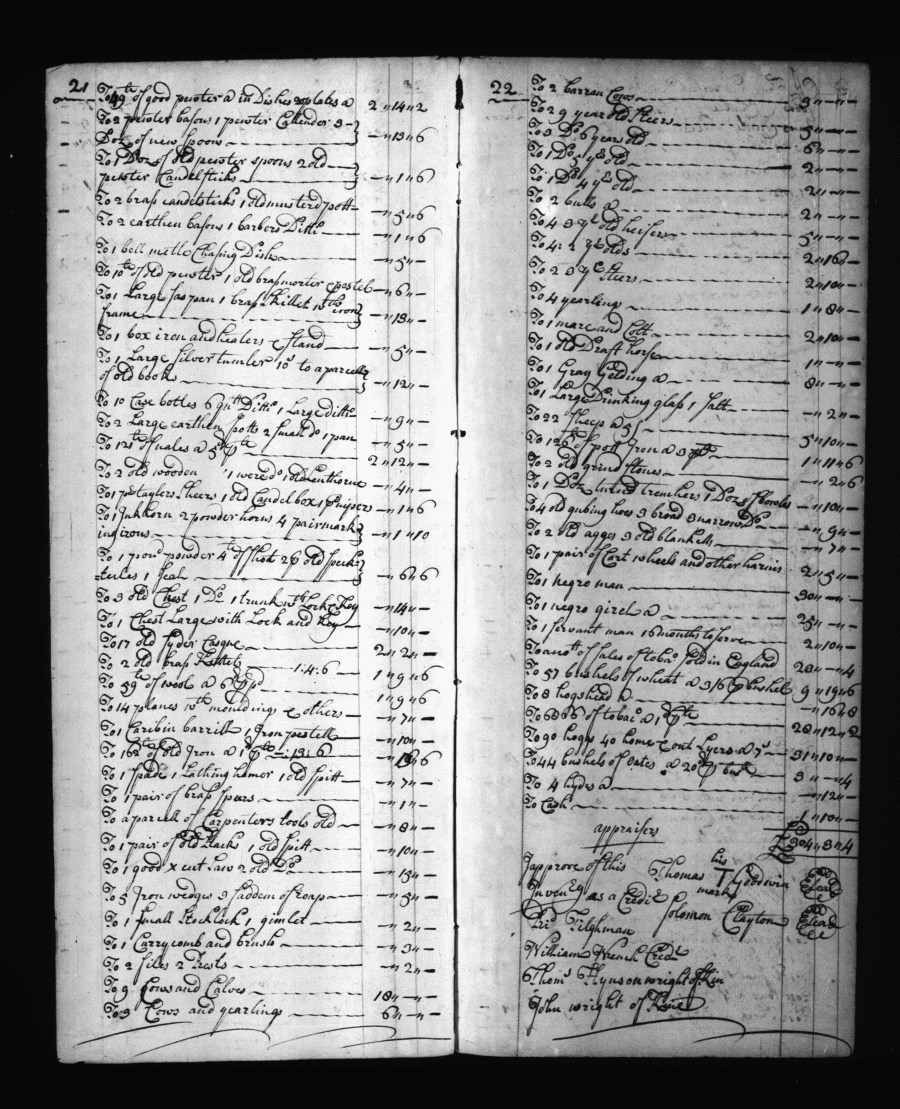 21
To 49 lb of good pewter a in Dishes & plates a 2 " 14 " 2
To 2 pewter basons 1 pewter Cullender 3
Doz. of new spoons — " 13 " 6
To 1 Doz of old pewter spoons 2 old
pewter Candelsticks — " 1 " 6
To 2 brass candelsticks 1 old musterd pott — " 5 " 6
To 2 earthen basons 1 barbers Ditto — " 1 " 6
To 1 bell mettle Chafing Dish — " 5 " —
To 10 lb of old pewter 1 old brass morter & pestel — " 6 " —
To 1 Large saspan 1 brass skillet wth iron
frame — " 13 " —
To 1 box iron and heaters & stand — " 5 " —
To 1 Large silver tumler to a parcell
of old books — " 12 " —
To 10 Case botles 6 qut Ditto 1 Large ditto — " 9 " —
To 2 Large earthen potts 2 small do 1 pan — " 5 " —
of nales a 2 " 12 " —
To 2 old wooden 1 were do 1 old Lenthorne — " 4 " —
To 1 pr taylers sheers 1 old Candel box 1 — " 1 " 6
To 1 Inkhorn 2 powder horns 4 pair mark
ing irons — " 1 " 10
To 1 pond powder 4 lb of shot 2 p old speck
=tecles 1 seal — " 6 " 6
To 3 old Chest 1 Do 1 trunk wth Lock & Key — " 14 " —
To 1 Chest Large with Lock and Key — " 10 " —
To 17 old syder Casque 2 " 2 " —
To 2 old brass Kettels 1:4:6 1 " 9 " 6
To 59 lb of wool a 6 p d 1 " 9 " 6
To 14 planes wth mouldings & others — " 7 " —
To 1 Caribin barrill 1 Iron pestell — " 10 " —
To 162 lb of old Iron a 1 p lb 13:6 — " 13 " 6
To 1 spade 1 Lathing hamer 1 old spitt — " 7 " —
To 1 pair of brass spurs — " 1 " —
To a parcell of Carpenters tools old — " 8 " —
To 1 pair of old 1 old spitt — " 10 " —
To 1 good x cut saw 2 old Do — " 15 " —
To 5 Iron wedges 3 faddom of roap — " 5 " —
To 1 small stock lock 1 gimlet — " 2 " —
To 1 Curry comb and brush — " 3 " —
To 2 files 2 Rests — " 2 " —
To 9 Cows and Calves 18 " — " —
To 3 Cows and yearlings 6 " — " —
22
To 2 barran Cows 3 " — " —
To 2 9 year old steers 5 " — " —
To 3 Do 6 years old 6 " — " —
To 1 Do 5 ye old 2 " — " —
To 1 Do 4 ye old 2 " — " —
To 2 bulls a 2 " — " —
To 4 3 ye old heifers 5 " — " —
To 4: 2 ye olds 2 " 16 " —
To 2 3 ye steers 2 " 10 " —
To 4 yearlings 1 " 8 " —
To 1 mare and Colt 2 " 10 " —
To 1 old Draft horse 1 " — " —
To 1 Gray Gelding a 8 " — " —
To 1 Large Drinking glass 1 salt — " 2 " —
To 22 sheep a 5/ 5 " 10 " —
To 126 lb of pott Iron a 3 p 1 " 11 " 6
To 2 old grind stones — " 2 " 6
To 1 Doz turnd trenchers 1 Doz of bowles — " 10 " —
To 4 old grubing hoes 3 broad 3 narrow Do — " 9 " —
To 2 old aggs 3 old blankets — " 7 " —
To 1 pair of Cart wheels and other harnis 2 " 5 " —
To 1 negro man 30 " — " —
To 1 negro girel a 25 " — " —
To 1 servant man 16 months to serve 2 " 10 " —
To an ott of sales of tobao sold in England 28 " — " 4
To 57 bushels of wheat a 3/6 p bushel 9 " 19 " 6
To 8 hogsheed a — " 16 " 8
To 6886 of tobaco a 1 p lb 28 " 12 " 2
To 90 hoggs 40 home & out Lyers a 7s 31 " 10 " —
To 44 bushels of Oates a 20d p bush 3 " — " 4
To 4 hydes a — " 12 " —
To Cash 1 " 10 " —
£ 304 " 8 " 4
appraisers
I approve of this
Inveny as a Credr
Thomas his T mark Godwin Seal
Solomon Clayton Seal
Tilghman
William Wrench Credr
Thoms Hynson wright of Kin
John wright of Kine